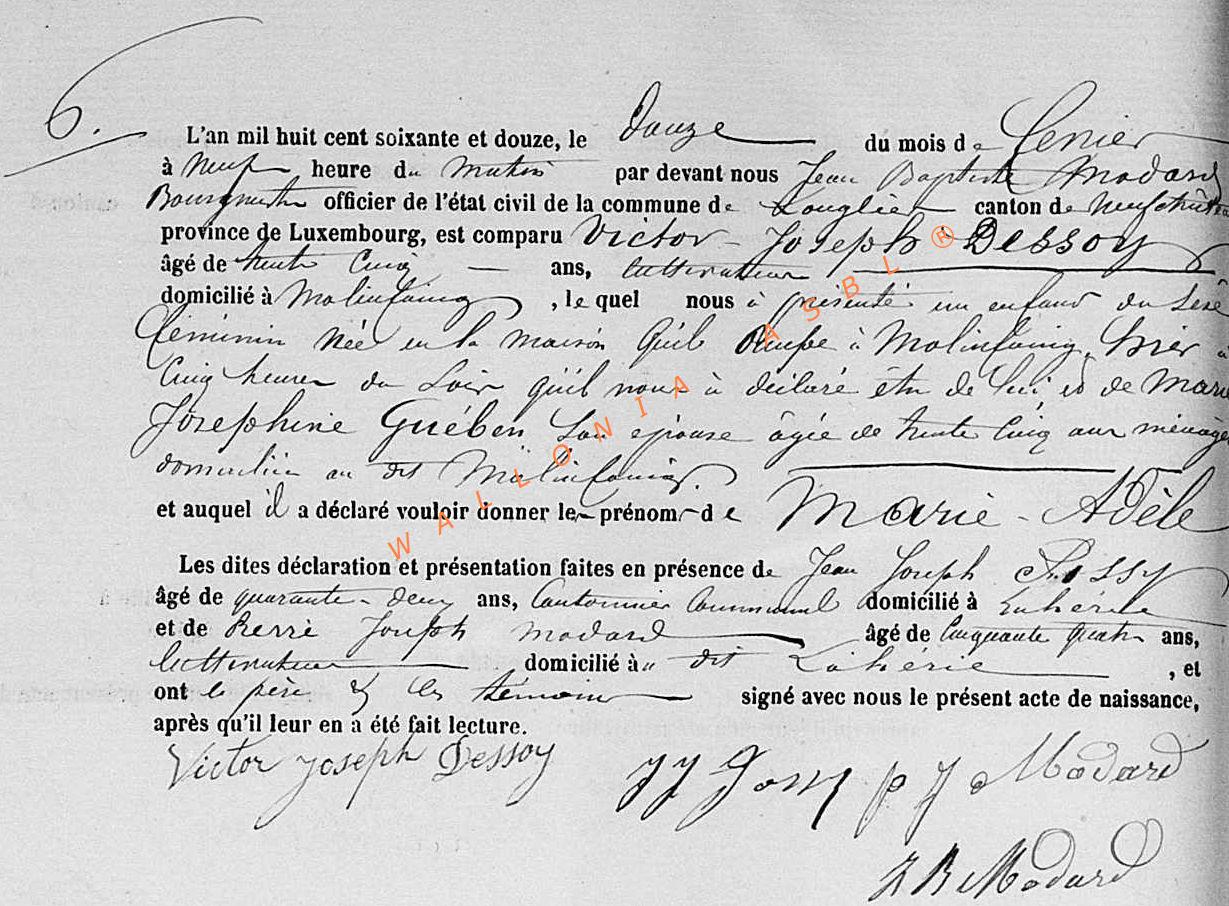 6.
L'an mil huit cent soixante et douze, le douze du mois de fevrier
à Neuf heure du Matin par devant nous Jean Baptiste Modard
Bourgmestre officier de l'état civil de la commune de Longlier canton de Neufchâteau
province de Luxembourg, est comparu Victor - Joseph Dessoy
âgé de trente Cinq ans, Cultivateur
domicilié à Molinfaing, le quel nous à présenté un enfant du sexe
féminin Née en la maison qu'il à Molinfaing, hier à
Cinq heures du Soir qu'il nous à déclaré être de lui, et de Marie
Joséphine Guében son epouse âgée de trente Cinq ans ménagère
domiciliée au dit Molinfaing.
et auquel il a déclaré vouloir donner les prénoms de Marie - Adèle
Les dites déclaration et présentation faites en présence de Jean Joseph
âgé de quarante-deux ans, Cantonnier Communal domicilié à Lahérie
et de Pierre Joseph Modard âgé de Cinquante quatre ans,
Cultivateur domicilié au dit Lahérie, et
ont le père & les témoins signé avec nous le présent acte de naissance,
après qu'il leur en a été fait lecture.
Victor Joseph Dessoy J J p J Modard
J B Modard
WALLONIA ASBL ®